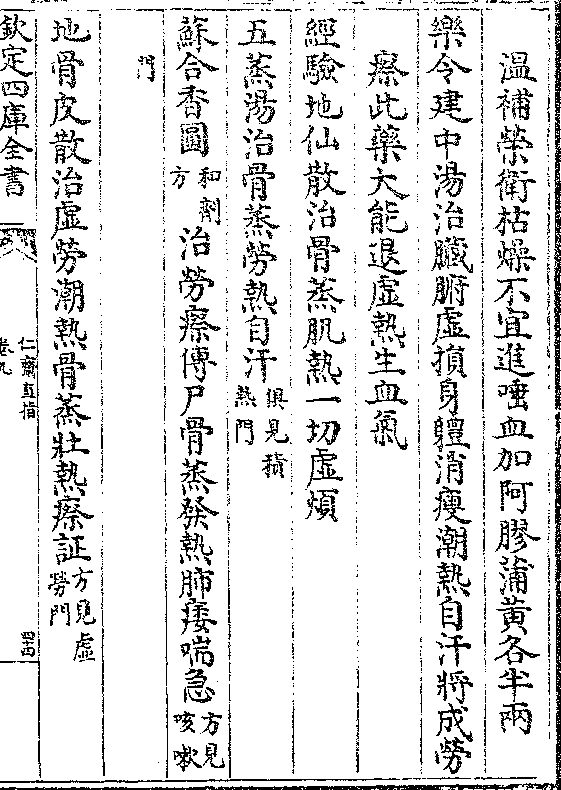 温補榮衛枯燥不宜進唾血加阿膠蒲黃各半兩
樂令建中湯治臟腑虛損身體消瘦潮熱自汗將成勞
瘵此藥大能退虛熱生血氣
經驗地仙散治骨蒸肌熱一切虛煩
五蒸湯治骨蒸勞熱自汗俱見積熱門
蘇合香圓和劑方治勞瘵傳尸骨蒸發熱肺痿喘急方見咳嗽
門
地骨皮散治虛勞潮熱骨蒸壯熱瘵証方見虛勞門
欽定四庫全書
仁齋直指
卷九
四十四